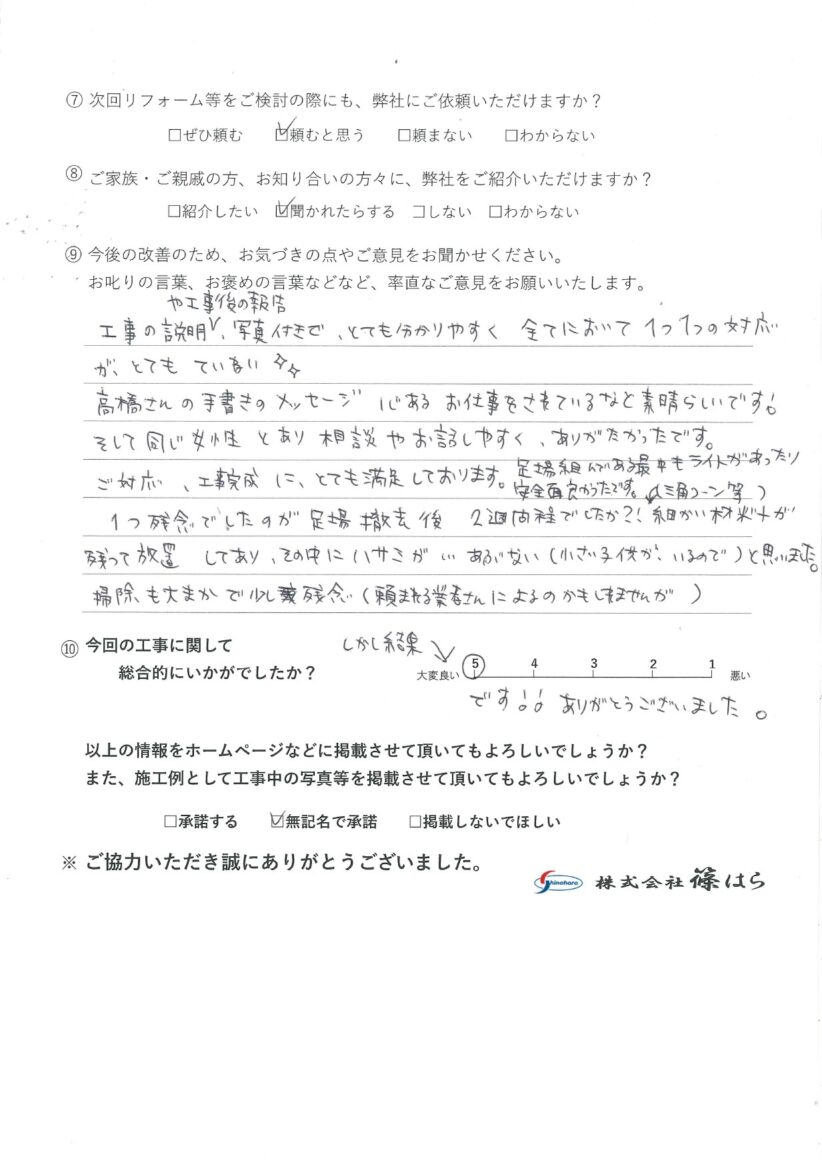 ⑦ 次回リフォーム等をご検討の際にも、弊社にご依頼いただけますか？
□ぜひ頼む ☑頼むと思う □頼まない □わからない
⑧ ご家族・ご親戚の方、お知り合いの方々に、弊社をご紹介いただけますか？
□紹介したい ☑聞かれたらする □しない □わからない
⑨ 今後の改善のため、お気づきの点やご意見をお聞かせください。
お叱りの言葉、お褒めの言葉などなど、率直なご意見をお願いいたします。
や工事後の報告
工事の説明、写真付きで、とても分かりやすく 全てにおいて 1つ1つの対応
が、とても ていねい
高橋さんの手書きのメッセージ 心ある お仕事をされているなと素晴らしいです!
そして同じ女性 とあり 相談やお話しやすく、ありがたかったです。
ご対応、工事完成 に、とても満足しております。足場組んである最中もライトがあったり
安全面良かったです。(三角コーン等)
1つ残念でしたのが 足場撤去後 2週間程でしたか?! 細かい材料が
残って放置 してあり、その中にハサミが… あぶない(小さい子供が、いるので)と思いました。
掃除も大まかで少し残念(頼まれる業者さんによるのかもしれませんが)
⑩ 今回の工事に関して
総合的にいかがでしたか？
しかし結果
大変良い 5 4 3 2 1 悪い
です!! ありがとうございました。
以上の情報をホームページなどに掲載させて頂いてもよろしいでしょうか？
また、施工例として工事中の写真等を掲載させて頂いてもよろしいでしょうか？
□承諾する ☑無記名で承諾 □掲載しないでほしい
※ ご協力いただき誠にありがとうございました。
Shinohara 株式会社 篠はら